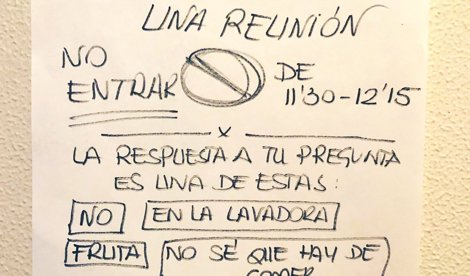 UNA REUNIÓN
NO ENTRAR DE 11'30-12'15
x
LA RESPUESTA A TU PREGUNTA
ES UNA DE ESTAS:
NO EN LA LAVADORA
FRUTA NO SÉ QUE HAY DE
COMER